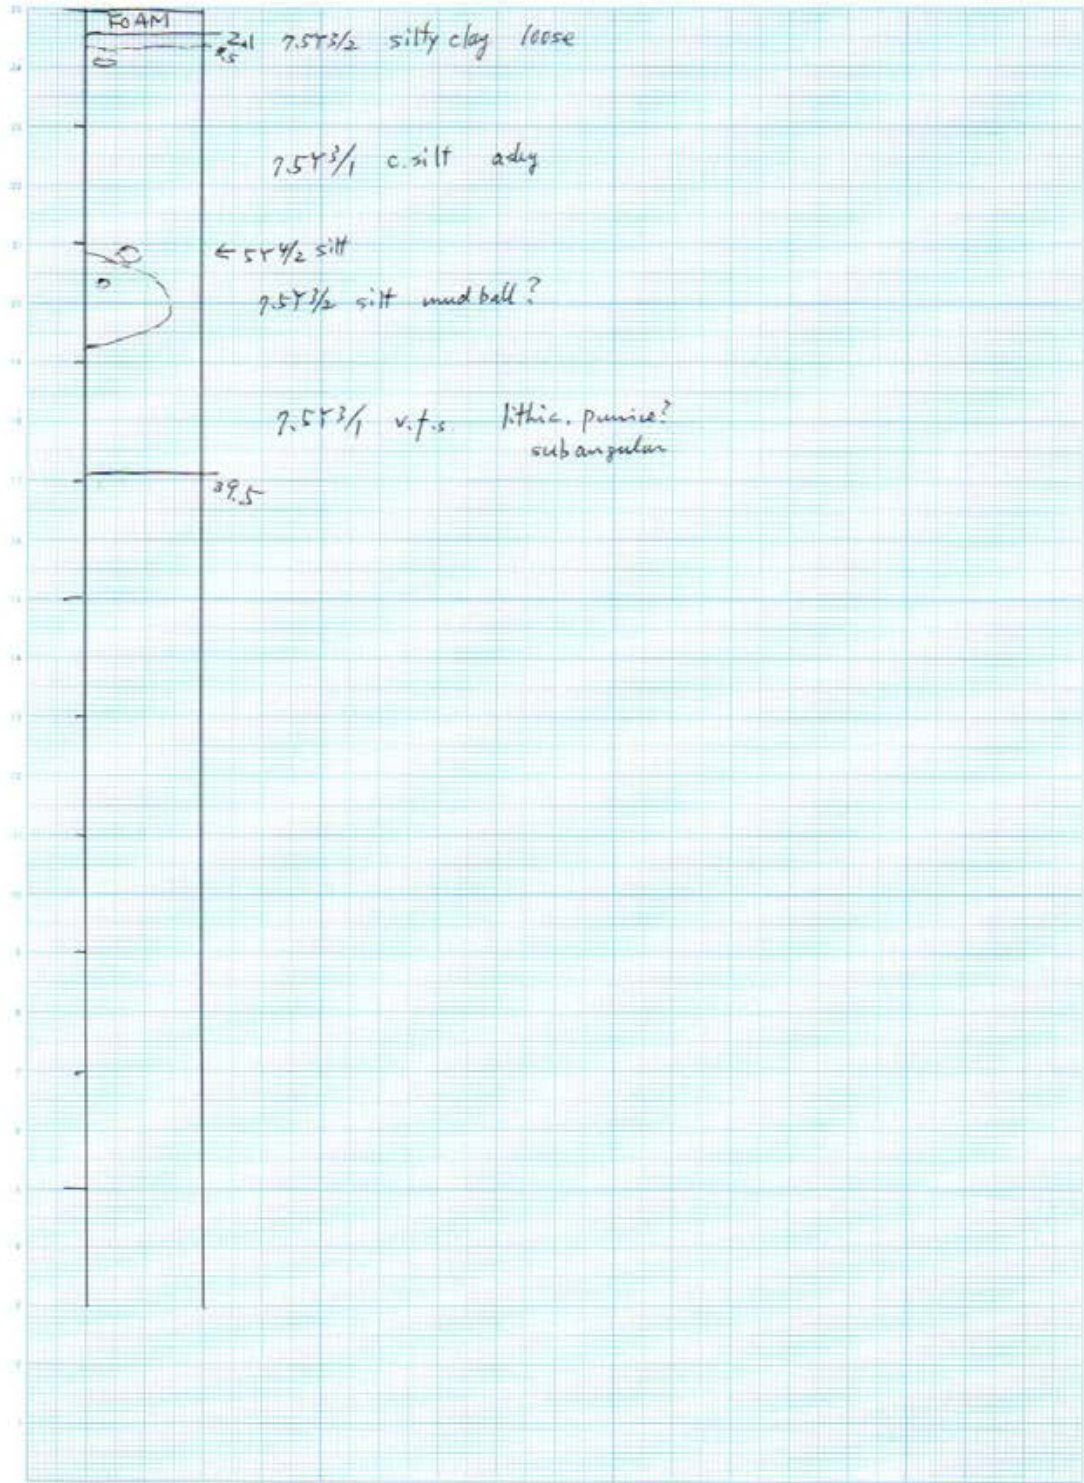 FOAM
2.1 7.5Y3/2 silty clay loose
7.5Y3/1 c.silt ashy
← 5Y4/2 silt
7.5Y3/2 silt mud ball?
7.5Y3/1 v.f.s. lithic. pumice?
subangular
39.5